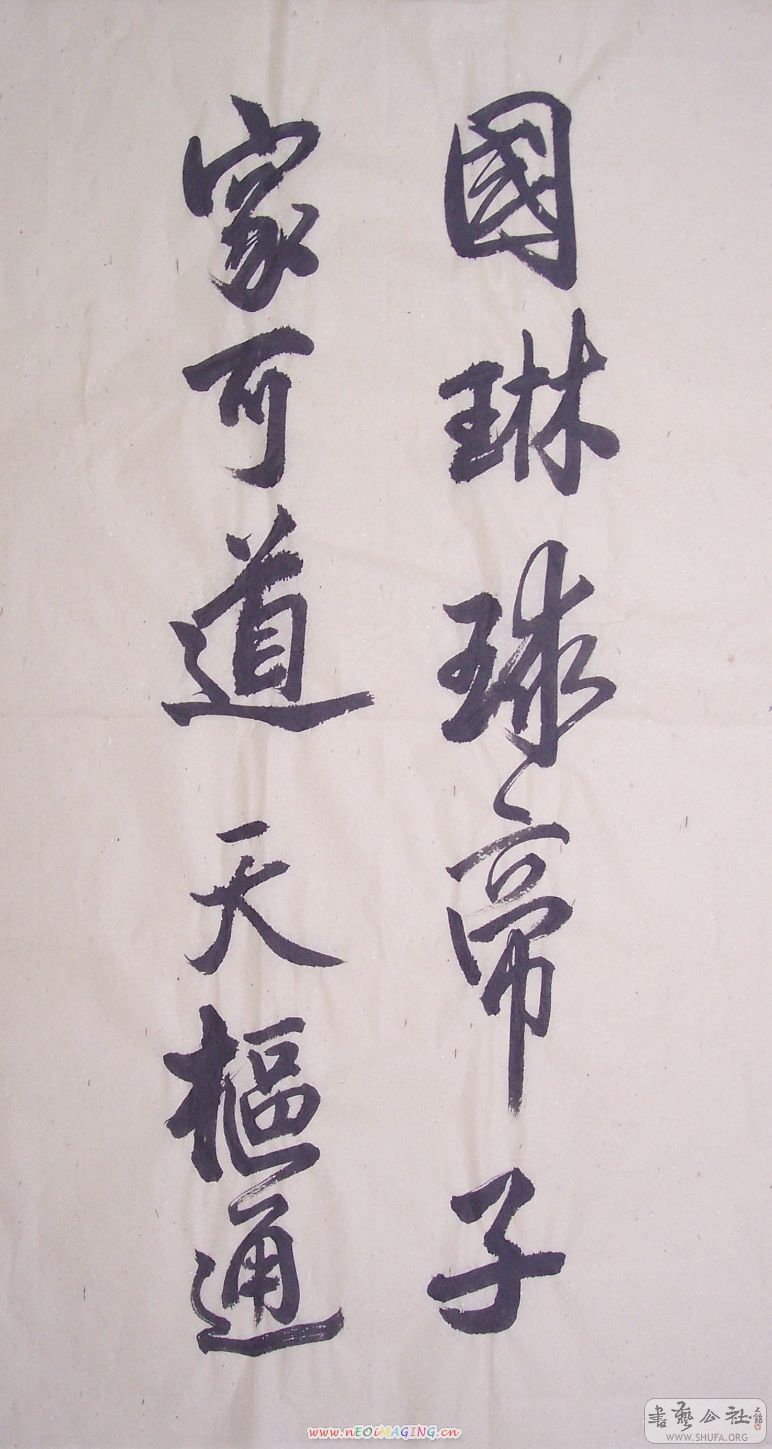 國琳球帝子
家可道天樞通
www.nEOiMAGiNG.cn
書藝公社
WWW.SHUFA.ORG